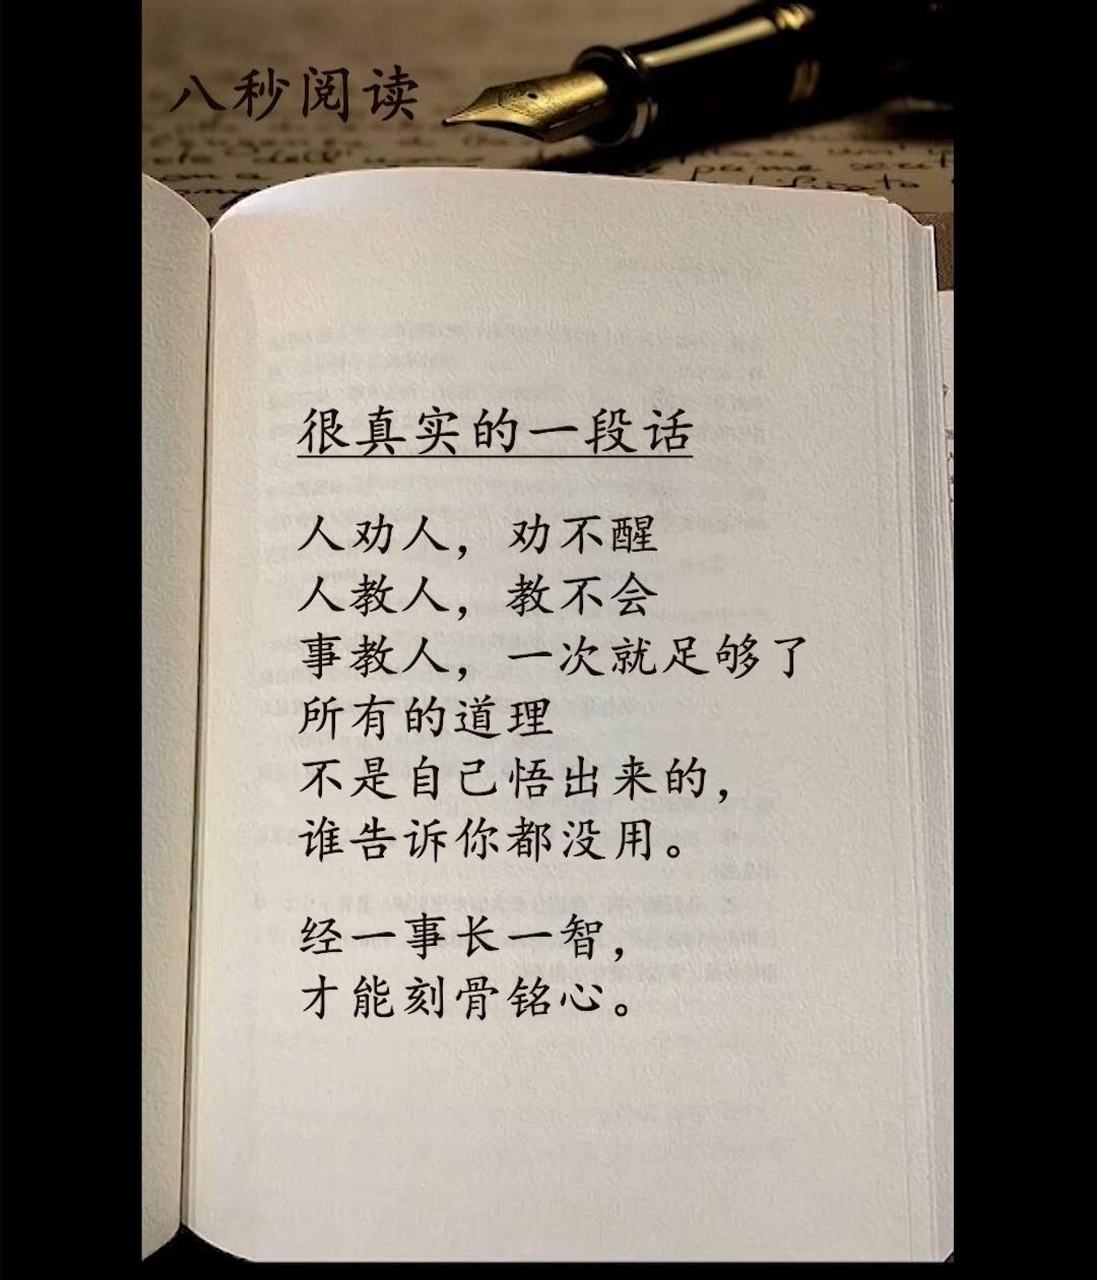 八秒阅读
很真实的一段话
人劝人，劝不醒
人教人，教不会
事教人，一次就足够了
所有的道理
不是自己悟出来的，
谁告诉你都没用。
经一事长一智，
才能刻骨铭心。